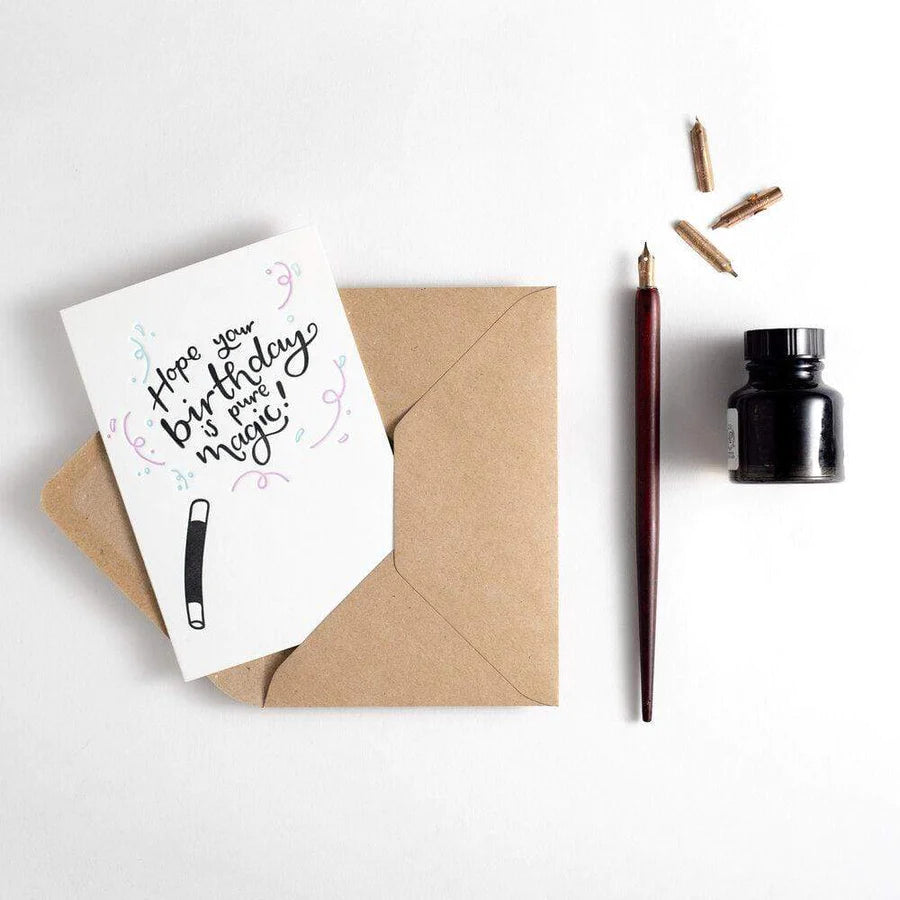 Hope your
birthday
is pure
magic!